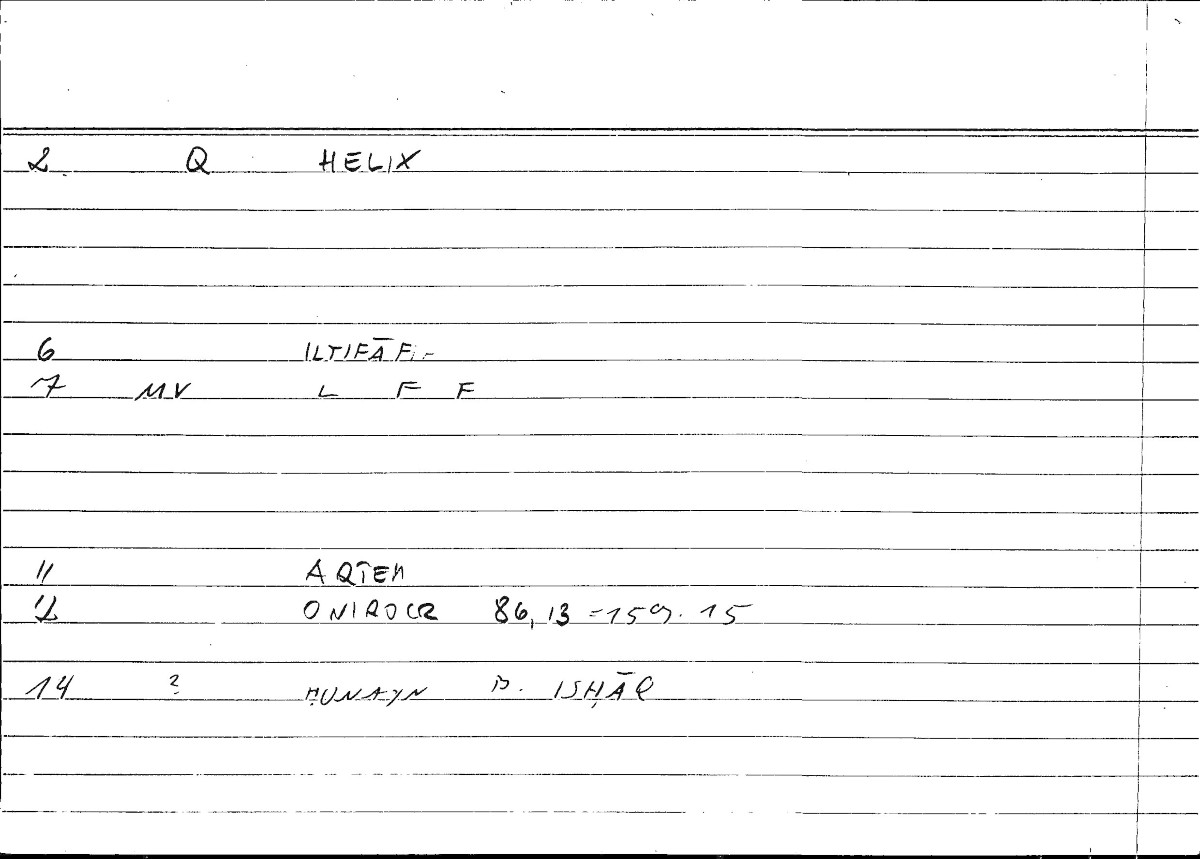 2 Q HELIX
6 ILTIFĀF
7 MV L F F
11 ARTEM
12 ONIROCR 86, 13 = 159.15
14 ? ḤUNAYN B. ISḤĀQ